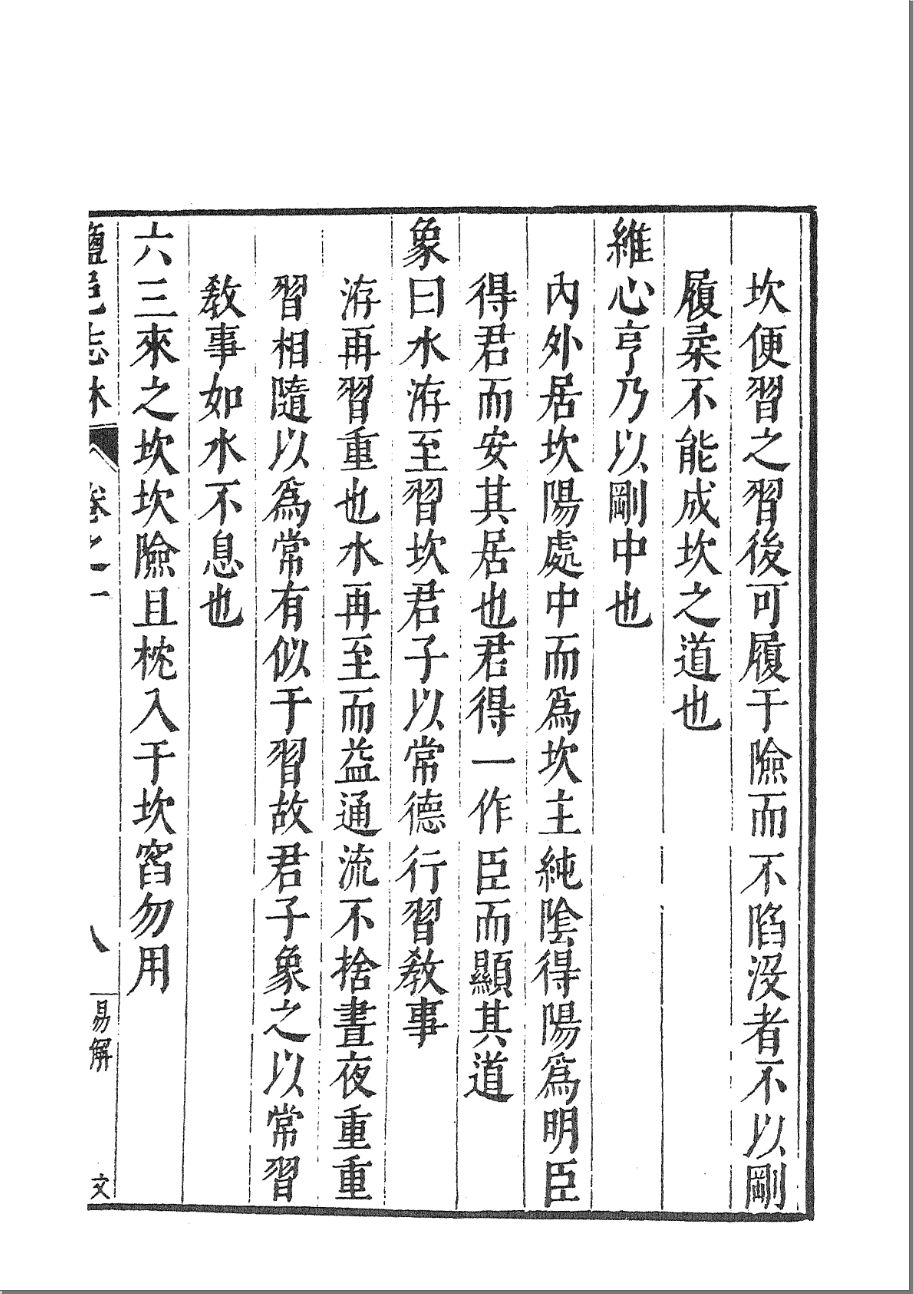 坎便習之習後可履于險而不陷没者不以剛
履柔不能成坎之道也
維心亨乃以剛中也
內外居坎陽處中而爲坎主純陰得陽爲明臣
得君而安其居也君得一作臣而顯其道
象曰水洊至習坎君子以常德行習教事
洊再習重也水再至而益通流不捨晝夜重重
習相隨以爲常有似于習故君子象之以常習
教事如水不息也
六三來之坎坎險且枕入于坎窞勿用
鹽邑志林 卷之一 八 易解 文